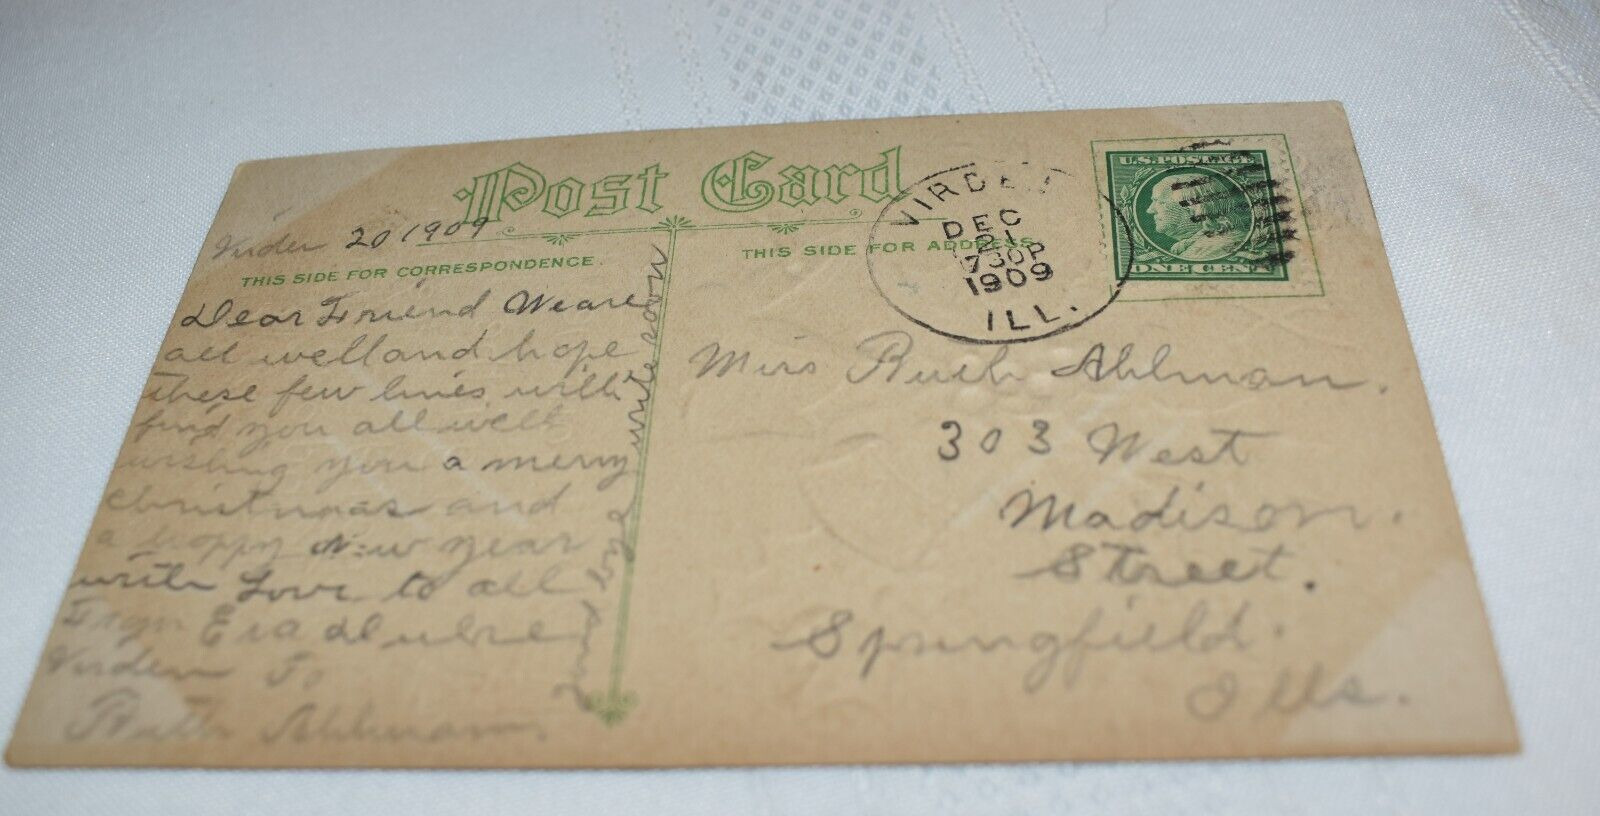 Post Card
Virden 20 1909
THIS SIDE FOR CORRESPONDENCE.
THIS SIDE FOR ADDRESS
VIRDEN
DEC
21
730P
1909
ILL.
U.S. POSTAGE
ONE CENT
Dear Friend We are
all well and hope
these few lines will
find you all well
wishing you a merry
christmas and
a happy New year
with Love to all
From Era
Virden To
Ruth Ahlman.
good bye write soon
Miss Ruth Ahlman.
303 West
Madison.
Street.
Springfield.
Ills.